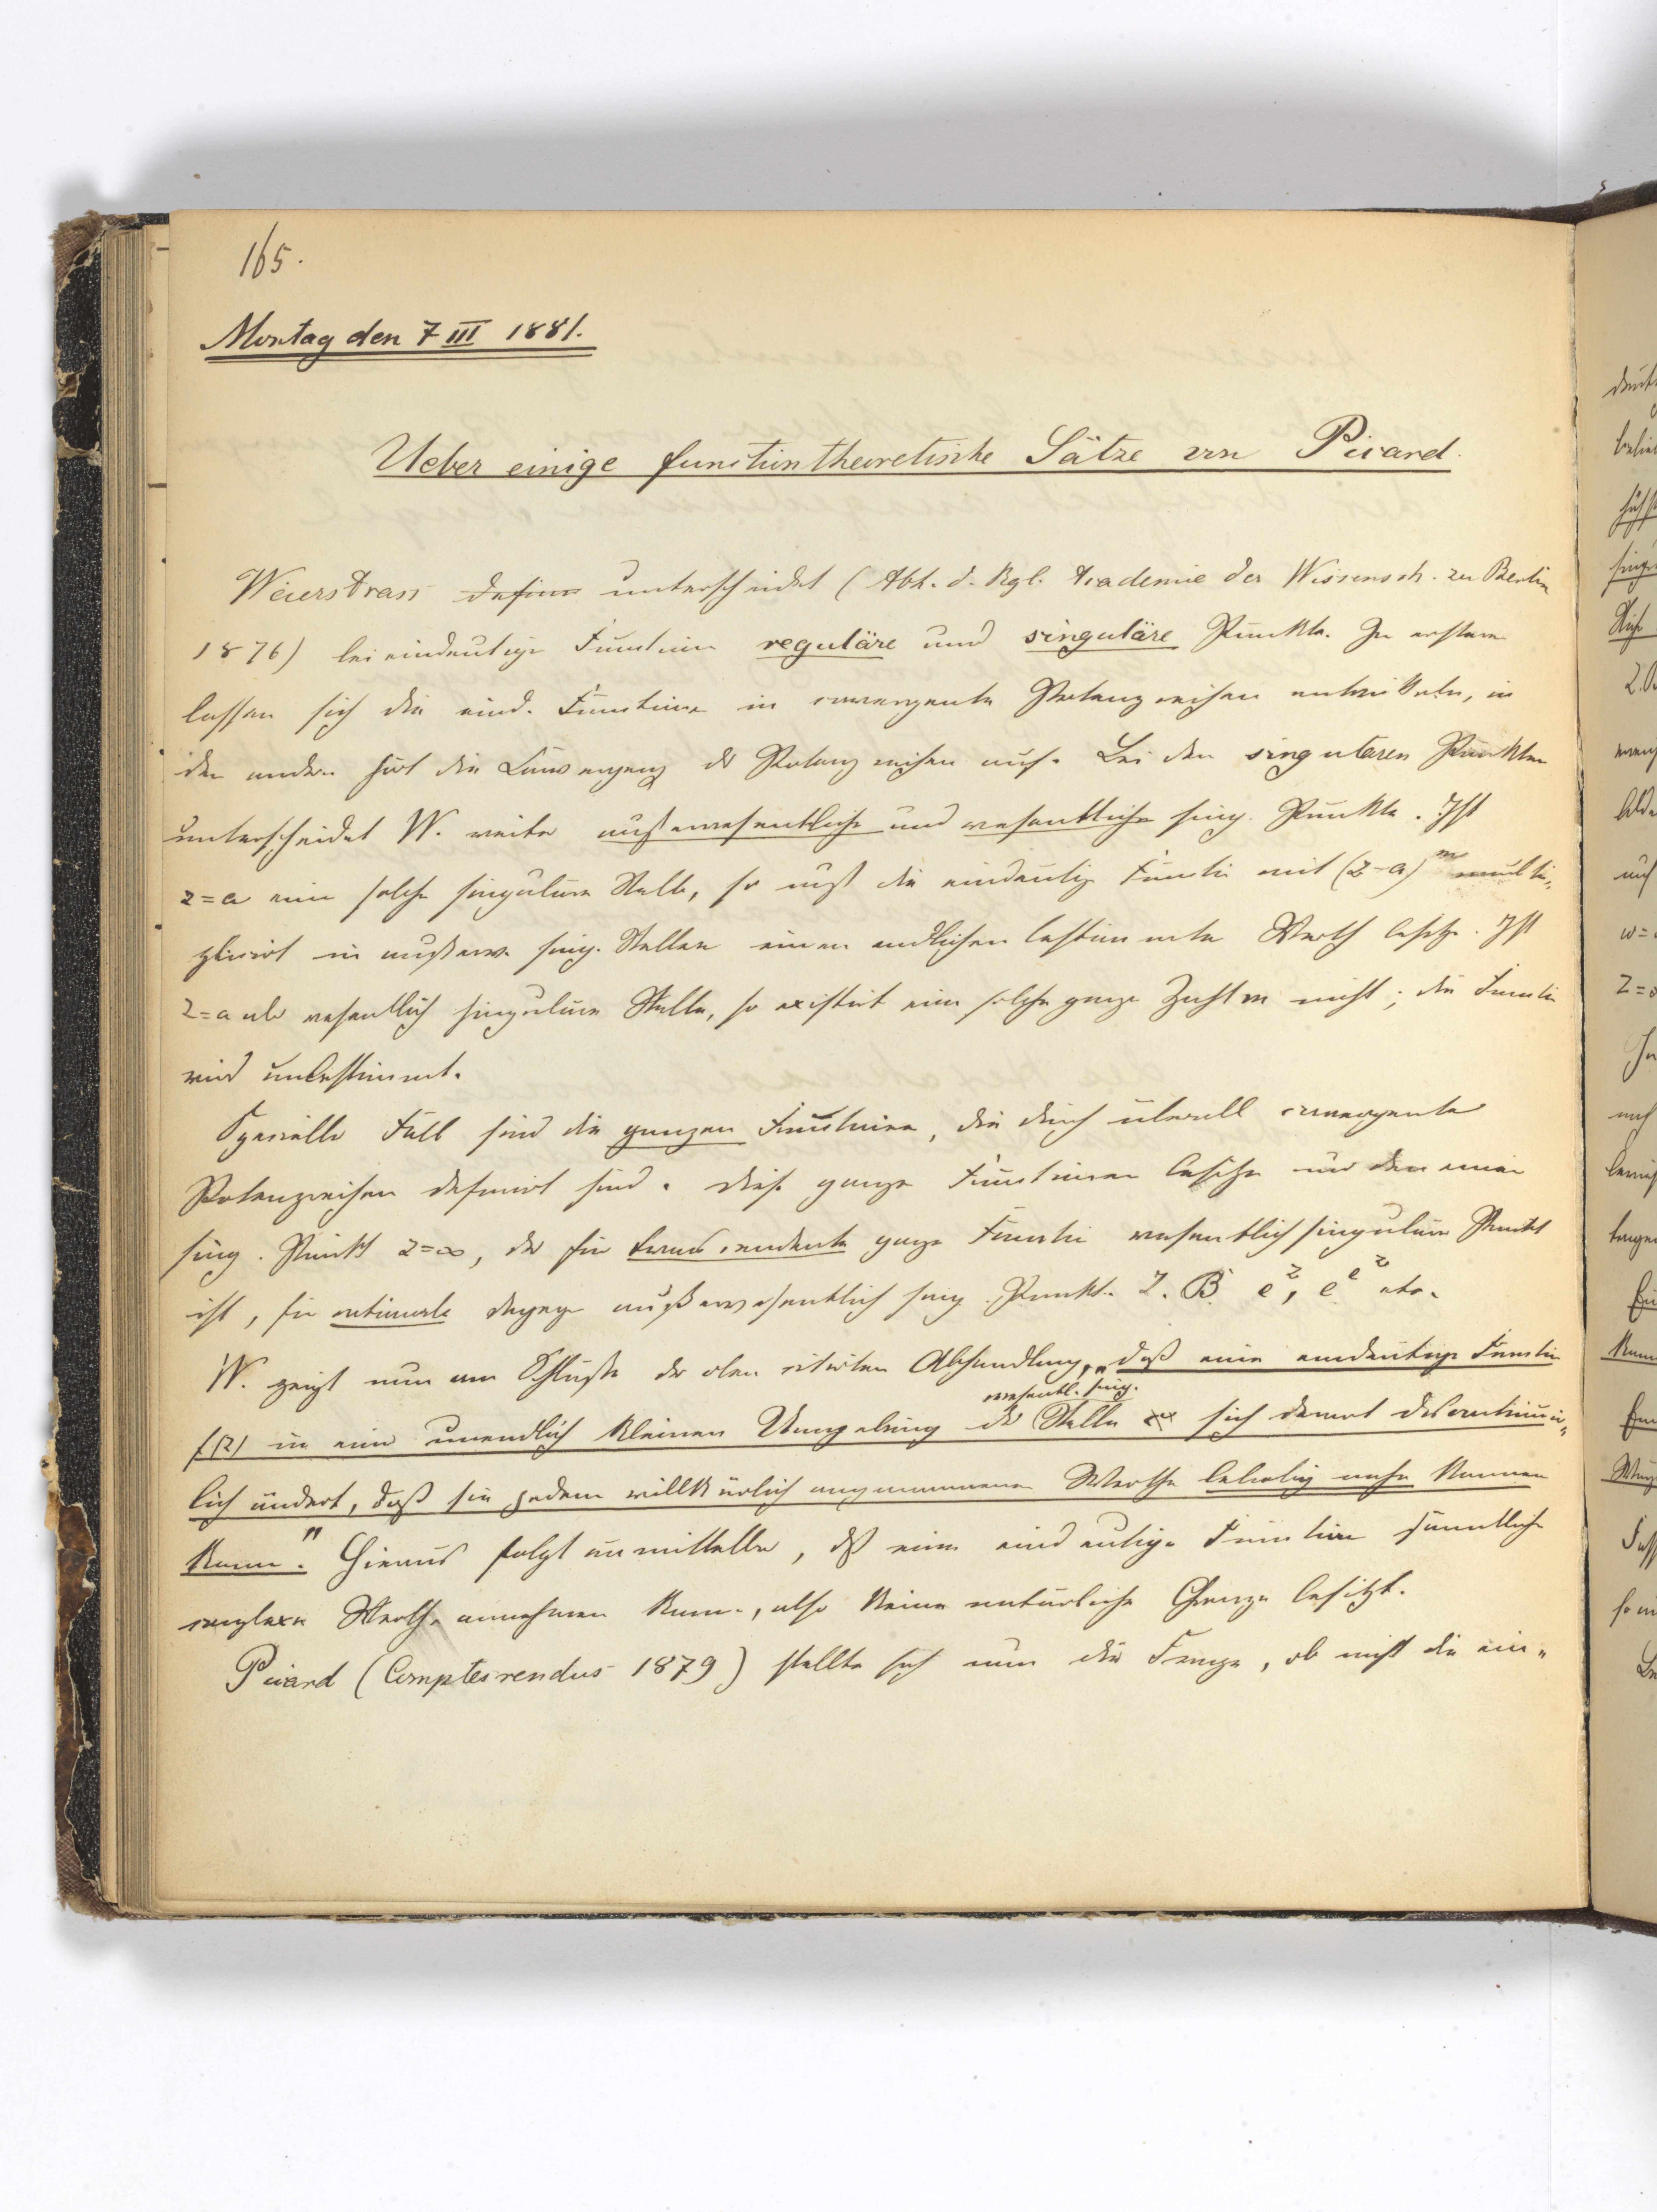 165.
Montag den 7 III 1881.
Ueber einige functiontheoretische Sätze von Picard.
Weierstrass unterscheidet (Abh. d. Kgl. Academie der Wissensch. zu Berlin
1876) bei eindeutigen Functionen reguläre und singuläre Punkte. In ersteren
lassen sich die eind. Functionen in convergente Potenzreihen entwickeln, in
den andern hört die Convergenz der Potenzreihen auf. Bei den singulären Punkten
unterscheidet W. weiter außerwesentliche und wesentliche sing. Punkte. Ist
z=a eine solche singuläre Stelle, so muß die eindeutige Function mit (z-a)^m multi-
plicirt in außerw. sing. Stellen einen endlichen bestimmten Werth besitzen. Ist
z=a als wesentlich singuläre Stelle, so existirt eine solche ganze Zahl m nicht; die Function
wird unbestimmt.
Specielle Fälle sind die ganzen Functionen, die durch überall convergente
Potenzreihen definirt sind. Diese ganzen Functionen besitzen nur den einen
sing. Punkt z=∞, der für transcendente ganze Function wesentlich singulärer Punkt
ist, für rationale dagegen außerwesentlich sing. Punkt. Z.B. e^z, e^{e^z} etc.
W. zeigt nun am Schluße der oben citirten Abhandlung, „daß eine eindeutige Function
f(z) in einer unendlich kleinen Umgebung der wesentl. sing. Stelle sich derart discontinuir-
lich ändert, daß sie jedem willkürlich angenommenen Werthe beliebig nahe kommen
kann." Hieraus folgt unmittelbar, dß eine eindeutige Function sämmtliche
complexe Werthe annehmen kann, also keine natürliche Grenze besitzt.
Picard (Comptes rendus 1879) stellte sich nun die Frage, ob nicht die ein-